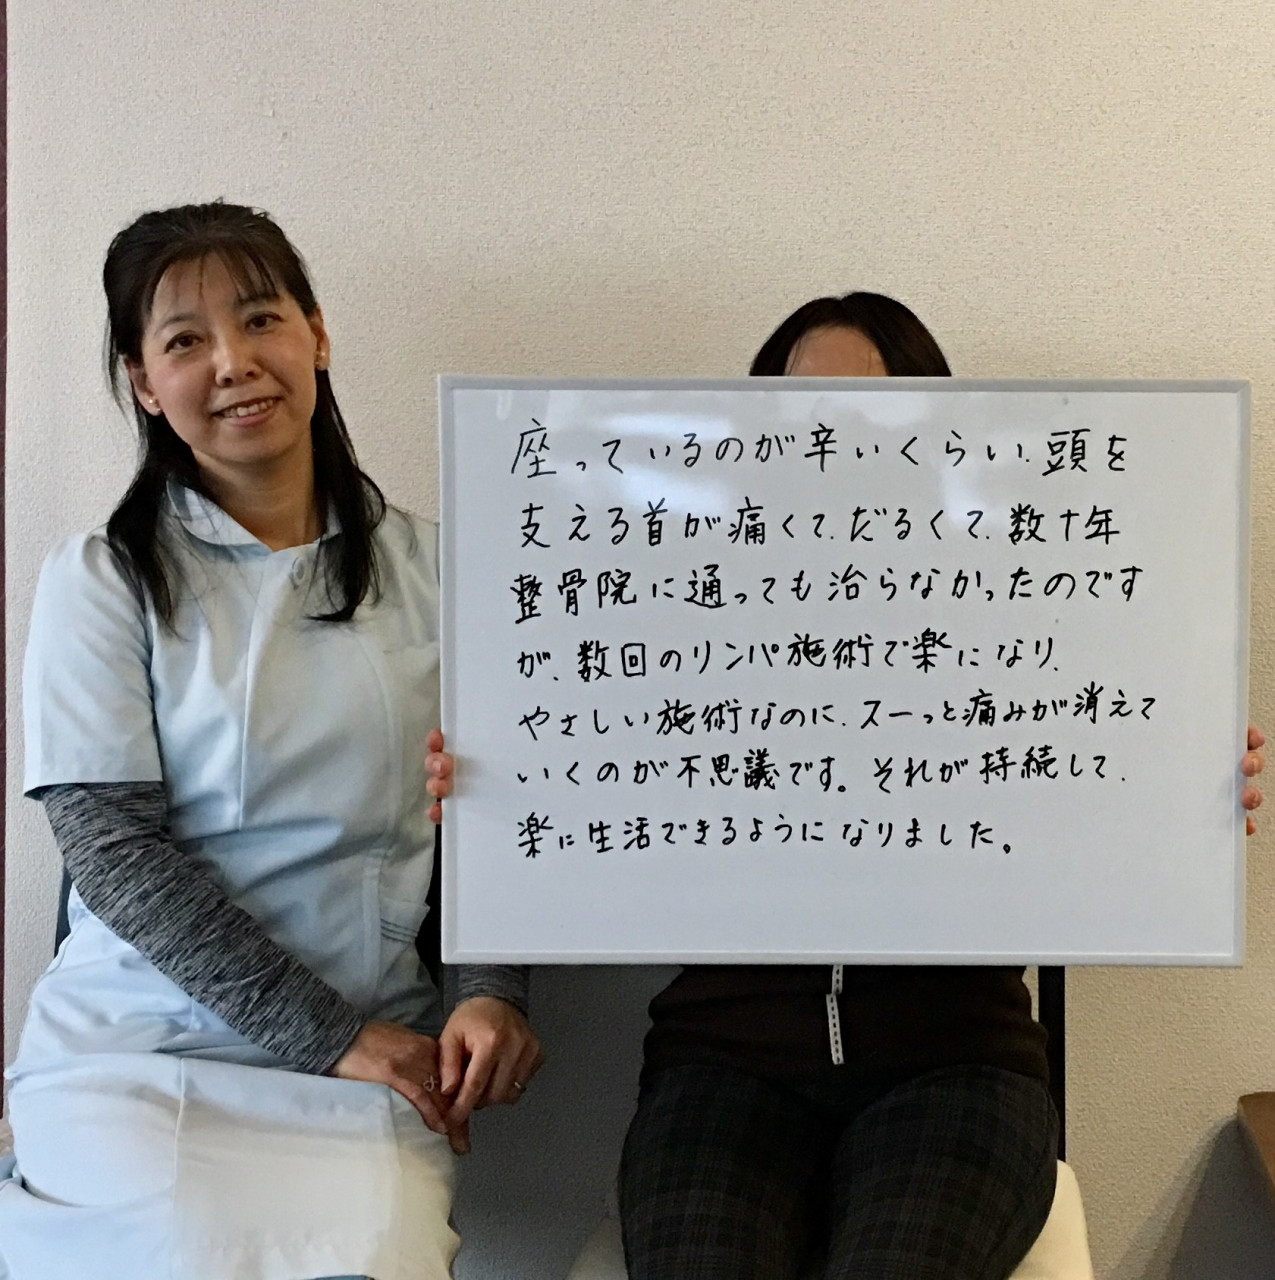 座っているのが辛いくらい、頭を
支える首が痛くて、だるくて、数十年
整骨院に通っても治らなかったのです
が、数回のリンパ施術で楽になり、
やさしい施術なのに、スーっと痛みが消えて
いくのが不思議です。それが持続して、
楽に生活できるようになりました。